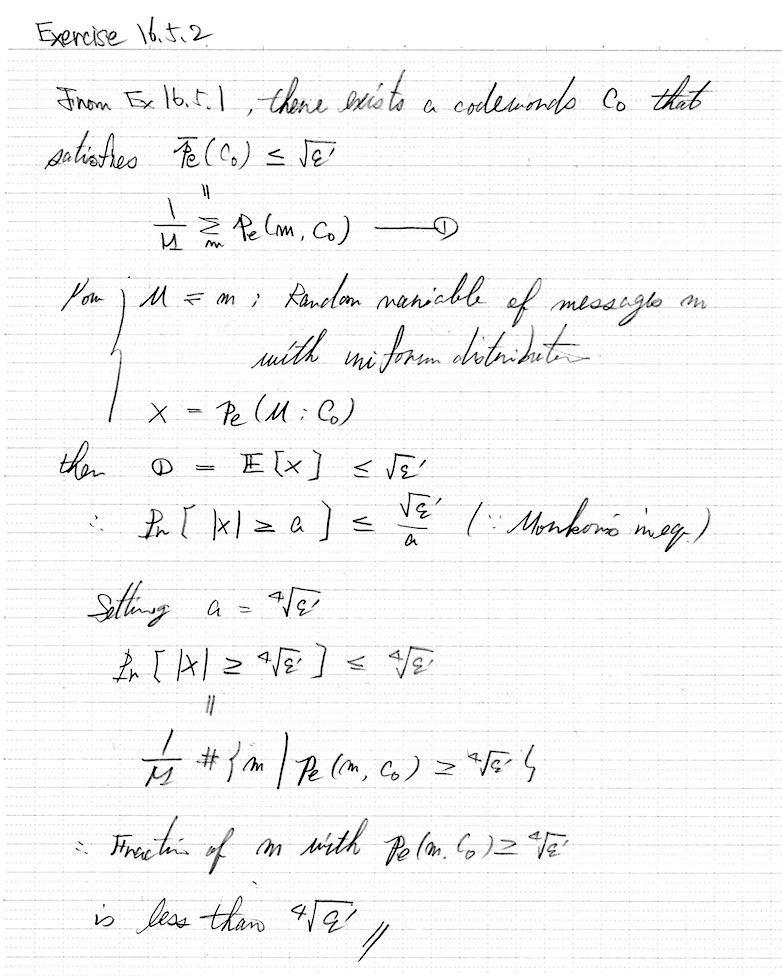 Exercise 16.5.2
From Ex 16.5.1, there exists a codewords C₀ that
satisfies p̄e(C₀) ≤ √ε'
||
1/M Σ_m pe(m, C₀) —— ①
For { M = m ; Random variable of messages m
with uniform distribution
X = pe(M : C₀)
then ① = 𝔼[X] ≤ √ε'
∴ Pr[ |X| ≥ a ] ≤ √ε'/a (∵ Markov's ineq.)
Setting a = ⁴√ε'
Pr[ |X| ≥ ⁴√ε' ] ≤ ⁴√ε'
||
1/M #{ m | pe(m, C₀) ≥ ⁴√ε' }
∴ Fraction of m with pe(m. C₀) ≥ ⁴√ε'
is less than ⁴√ε' //